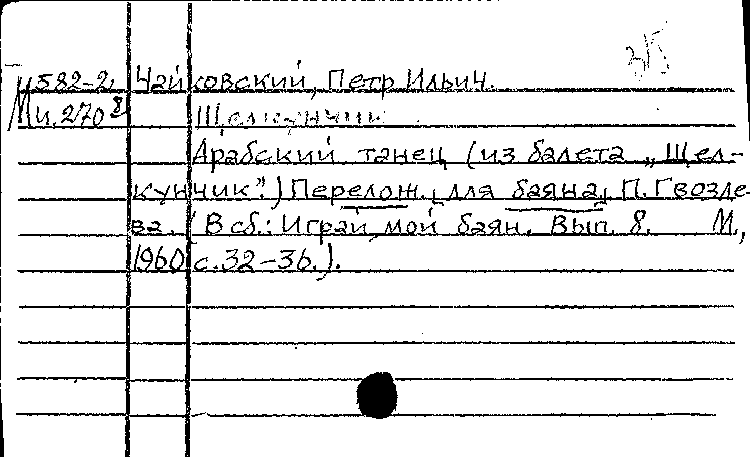 М582-2 Чайковский, Петр Ильич.
Ми.270⁸ Щелкунчик
Арабский танец (из балета „Щел-
кунчик".) Перелож. [для баяна] П. Гвозде-
ва. (В сб.: Играй, мой баян. Вып. 8. М.,
1960 с.32-36.).